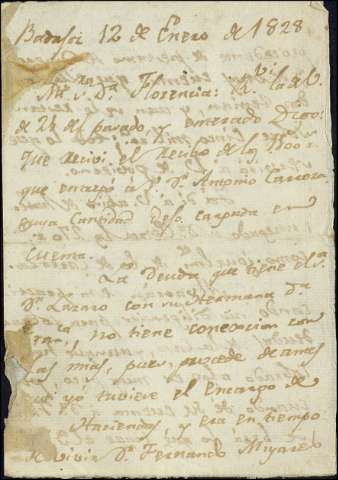 Badajz 12 de Enero de 1828
Mi Sra. Da. Florencia: Rvi. la de V.
de 28 del pasado, y enterado Digo:
que recivi el recibo de los 800 rs
que entregó a D. Antonio Carrera
cuya Cantidad dejo cargada en
Cuenta.
La Deuda que tiene el Sr.
Dn. Lazaro con su Hermana Da.
no tiene conexcion con
las mias, pues procede de antes
que yo tuviese el encargo de
Haciendas, y era en tiempo
de vivir Dn. Fernando Miyares